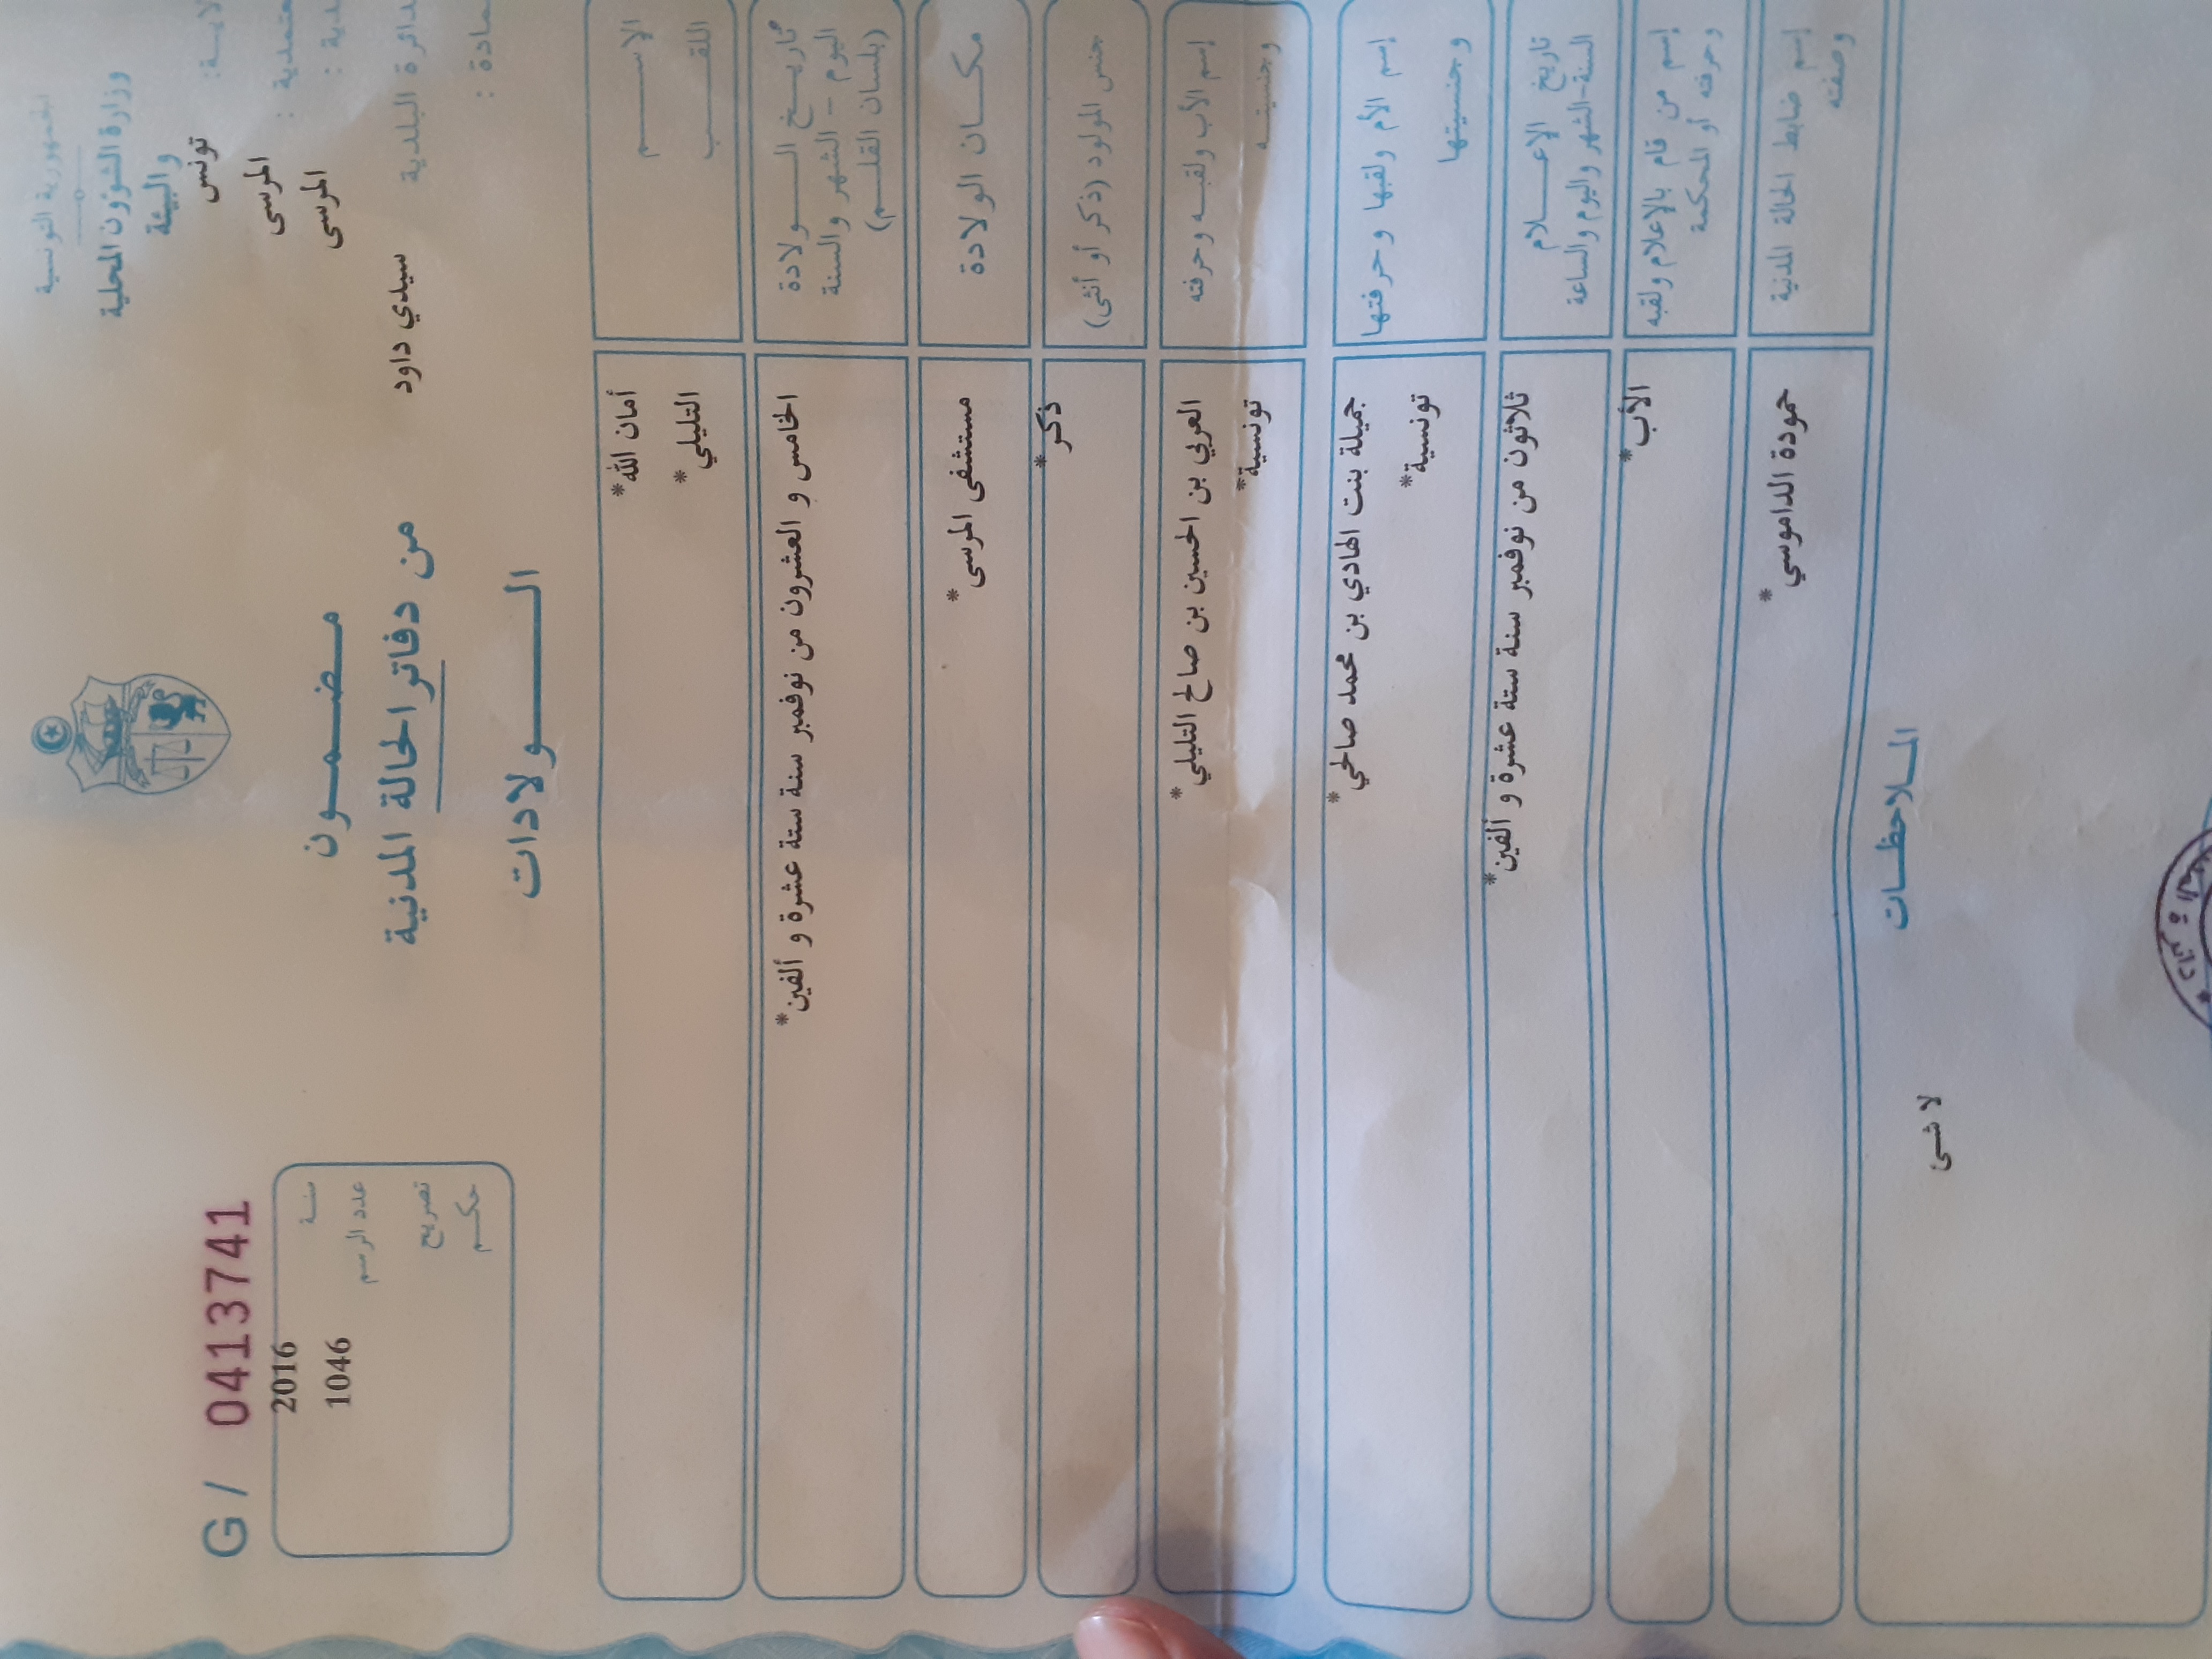 الجمهورية التونسية
وزارة الشؤون المحلية
والبيئة
تونس
المرسى
المرسى
دائرة البلدية سيدي داود
G / 0413741
سنة 2016
عدد الرسم 1046
تصريح
حكم
مضمون
من دفاتر الحالة المدنية
الولادات
الاسم أمان الله*
اللقب التليلي*
تاريخ الولادة الخامس و العشرون من نوفمبر سنة ستة عشرة و ألفين*
اليوم - الشهر والسنة
(بلسان القلم)
مكان الولادة مستشفى المرسى*
جنس المولود (ذكر أو أنثى) ذكر*
إسم الأب ولقبه وحرفته العربي بن الحسين بن صالح التليلي*
وجنسيته تونسية*
إسم الأم ولقبها وحرفتها جميلة بنت الهادي بن محمد صالحي*
وجنسيتها تونسية*
تاريخ الإعلام ثلاثون من نوفمبر سنة ستة عشرة و ألفين*
السنة-الشهر واليوم والساعة
إسم من قام بالإعلام ولقبه الأب*
وحرفته أو المحكمة
إسم ضابط الحالة المدنية حمودة الداموسي*
وصفته
الملاحظات
لا شئ